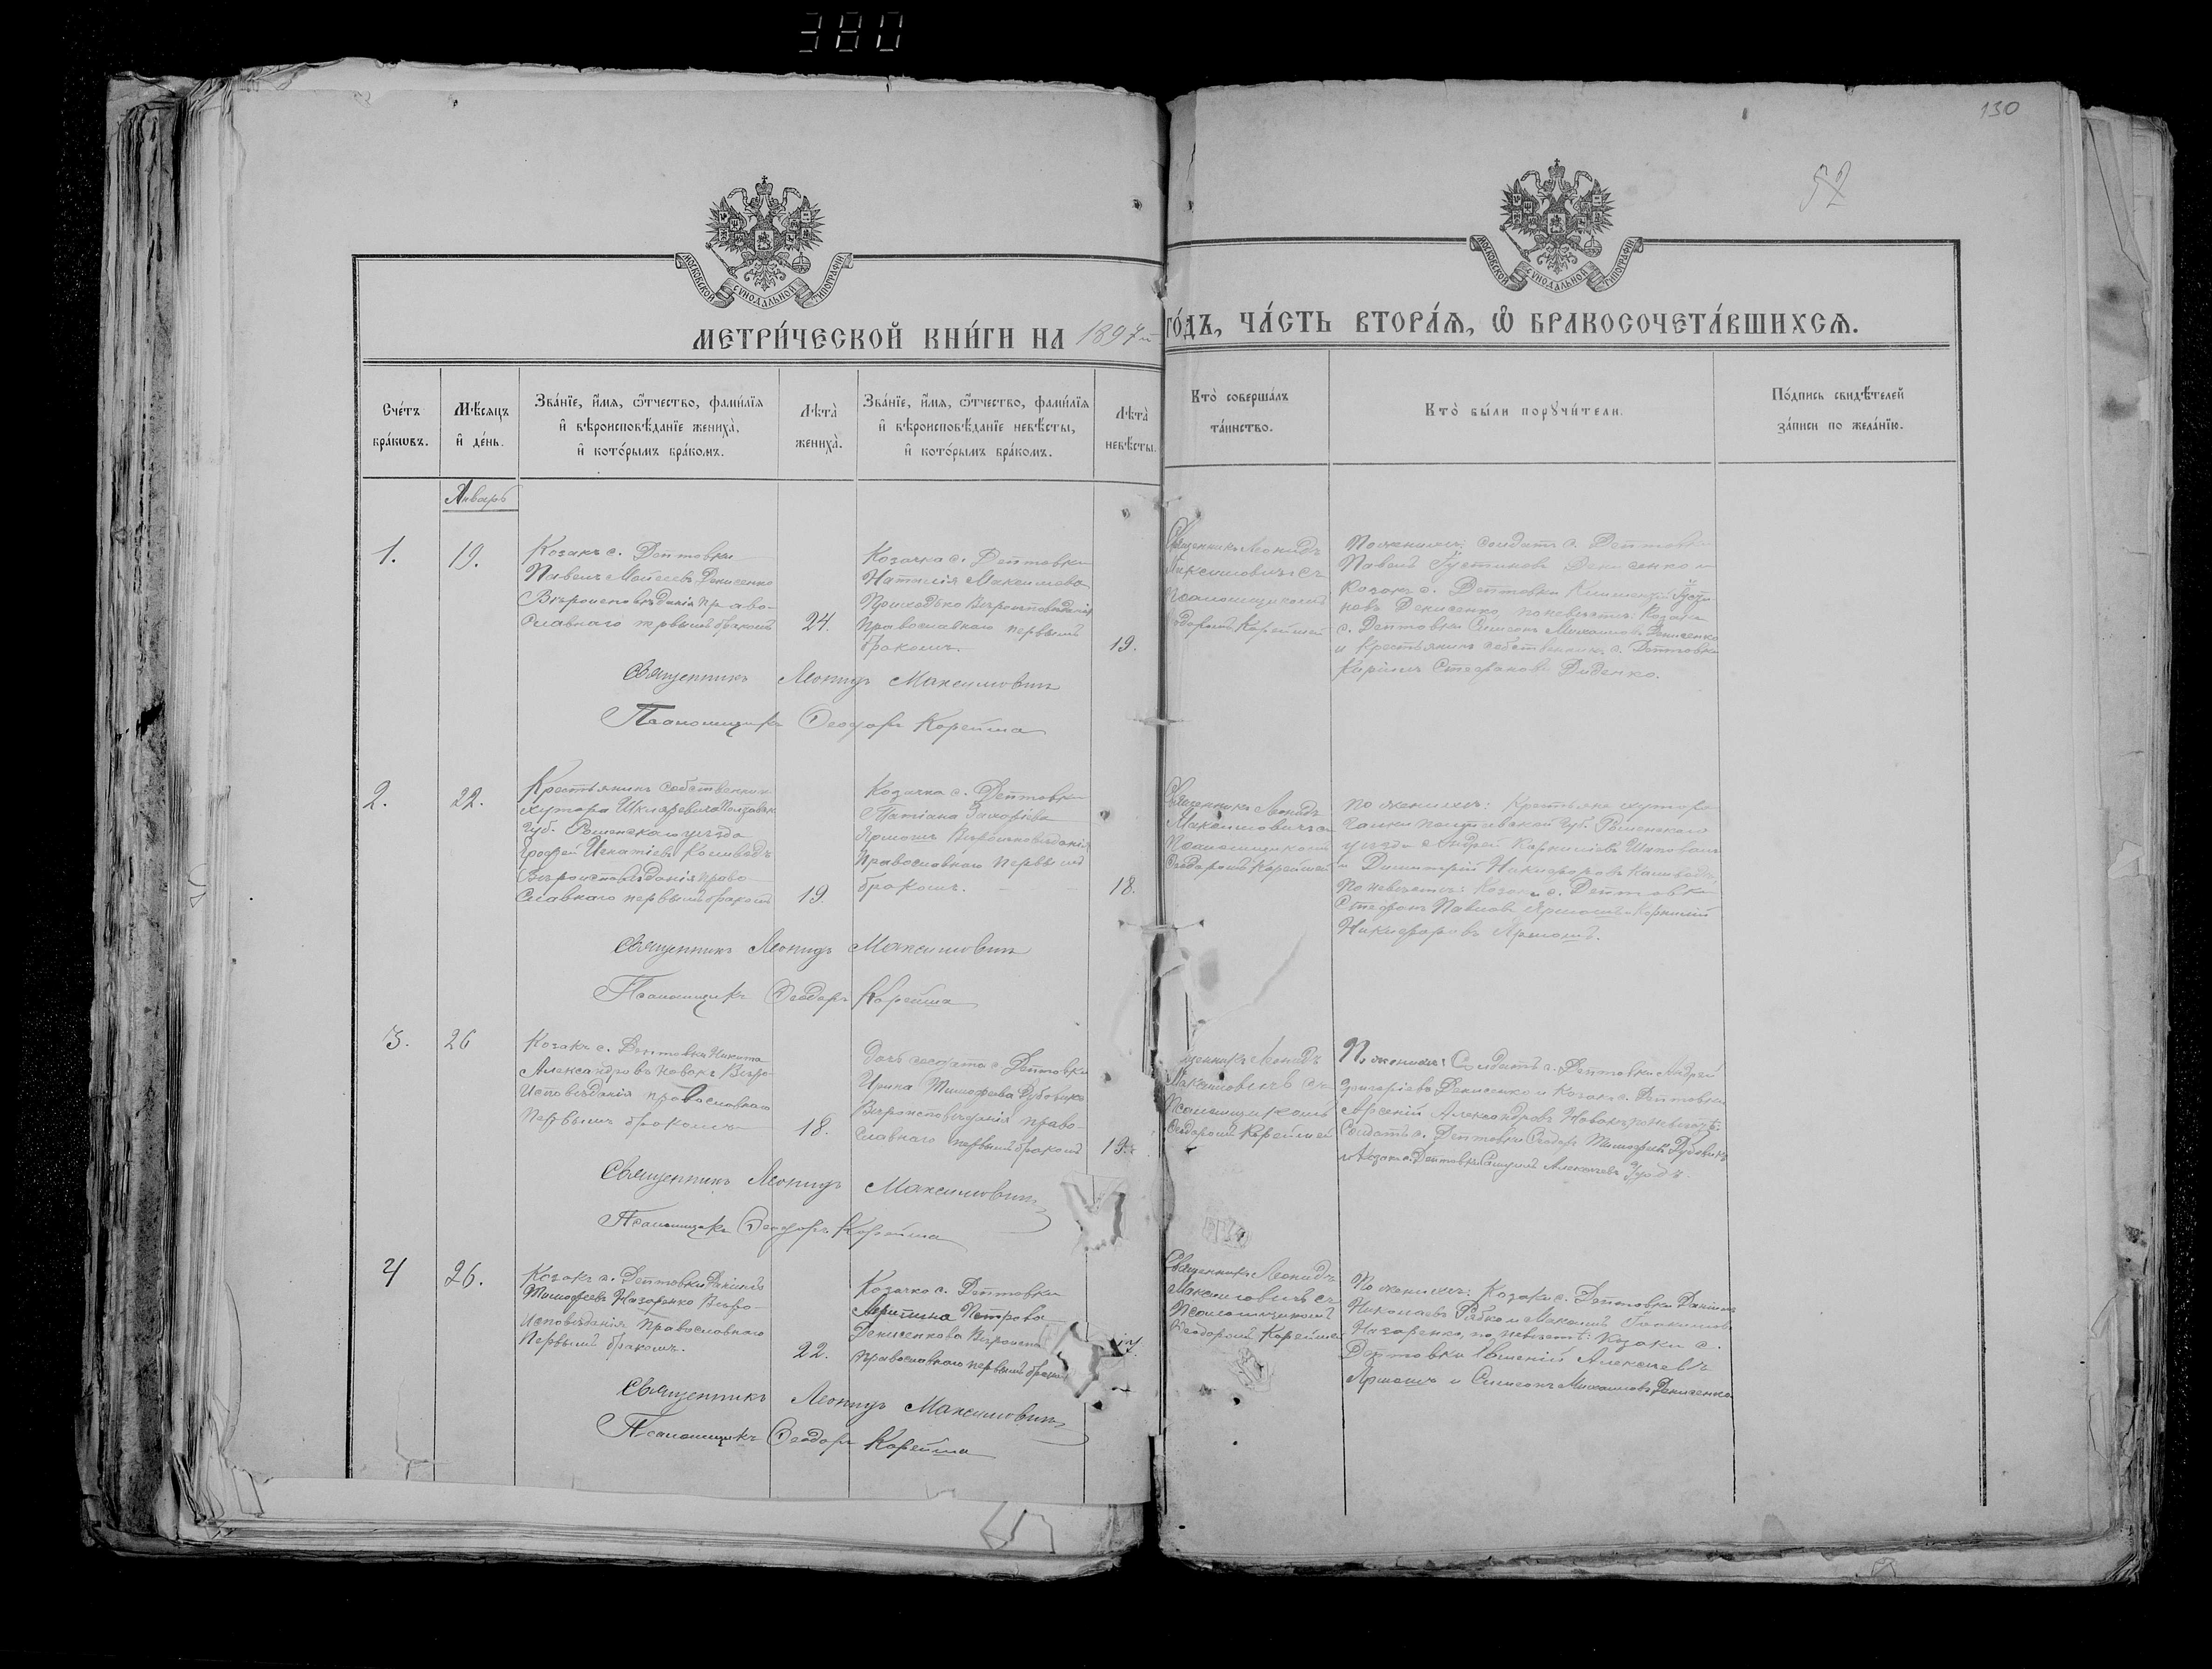 380
130
52
МОСКОВСКОЙ СУНОДАЛЬНОЙ ТИПОГРАФІИ
МОСКОВСКОЙ СУНОДАЛЬНОЙ ТИПОГРАФІИ
МЕТРИ́ЧЕСКОЙ КНИ́ГИ НА 1897 ГО́ДЪ, ЧА́СТЬ ВТОРА́Ѧ, Ѡ҆ БРАКОСОЧЕТА́ВШИХСѦ.
Сче́тъ
бра́кѡвъ.
Мѣ́сяцъ
и҆ де́нь.
Зва́нїе, и҆́мя, ѻ҆́тчество, фами́лїя
и҆ вѣроисповѣ́данїе жениха̀,
и҆ кото́рымъ бра́комъ.
Лѣта̀
жениха̀.
Зва́нїе, и҆́мя, ѻ҆́тчество, фами́лїя
и҆ вѣроисповѣ́данїе невѣ́сты,
и҆ кото́рымъ бра́комъ.
Лѣта̀
невѣ́сты.
Кто̀ соверша́лъ
та́инство.
Кто̀ бы́ли порꙋчи́тели.
По́дпись свидѣ́телей
за́писи по жела́нїю.
Январь
1.
19.
Козакъ с. Дептовки
Павелъ Моисеевъ Денисенко
Вѣроисповѣданія право-
славнаго первымъ бракомъ
24.
Козачка с. Дептовки
Наталія Максимова
Приходько Вѣроисповѣданія
Православнаго первымъ
бракомъ.
19.
Священникъ Леонидъ
Максимовичъ съ
Псаломщикомъ
Ѳеодоромъ Корейшей
По женихѣ: солдатъ с. Дептовки
Павелъ Іустиновъ Денисенко и
Козакъ с. Дептовки
Денисенко, по невѣстѣ: Козакъ
с. Дептовки Симеонъ Михаиловъ Денисенко
и крестьянинъ собственникъ с. Дептовки
Стефановъ Диденко.
Священникъ Леонидъ Максимовичъ
Псаломщикъ Ѳеодоръ Корейша
2.
22.
Крестьянинъ собственникъ
хутора
Губ. Роменскаго уѣзда
Игнатіевъ
Вѣроисповѣданія право-
славнаго первымъ бракомъ
19.
Козачка с. Дептовки
Татіана Захаріева
Ярмошъ Вѣроисповѣданія
Православнаго первымъ
бракомъ.
18.
Священникъ Леонидъ
Максимовичъ съ
Псаломщикомъ
Ѳеодоромъ Корейшей
По женихѣ: Крестьяне хутора
Полтавской Губ. Роменскаго
уѣзда Андрей Корниліевъ Шаповалъ
и Димитрій Никифоровъ
По невѣстѣ: Козаки с. Дептовки
Стефанъ Павловъ Ярмошъ и Корнилій
Никифоровъ Ярмошъ.
Священникъ Леонидъ Максимовичъ
Псаломщикъ Ѳеодоръ Корейша
3.
26
Козакъ с. Дептовки Никита
Александровъ Новакъ Вѣро-
Исповѣданія православнаго
Первымъ бракомъ
18.
Дочь солдата с. Дептовки
Ирина Тимофеева
Вѣроисповѣданія право-
славнаго первымъ бракомъ
19.
Священникъ Леонидъ
Максимовичъ съ
Псаломщикомъ
Ѳеодоромъ Корейшей
По женихѣ: Солдатъ с. Дептовки Андрей
Григоріевъ Денисенко и Козакъ с. Дептовки
Арсеній Александровъ Новакъ, по невѣстѣ:
Солдатъ с. Дептовки Ѳеодоръ
и Козакъ с. Дептовки Алексѣевъ
Священникъ Леонидъ Максимовичъ
Псаломщикъ Ѳеодоръ Корейша
4
26.
Козакъ с. Дептовки Даніилъ
Тимофеевъ Назаренко Вѣро-
Исповѣданія Православнаго
Первымъ бракомъ.
22.
Козачка с. Дептовки
Петрова
Денисенкова Вѣроисп.
православнаго первымъ браком
17.
Священникъ Леонидъ
Максимовичъ съ
Псаломщикомъ
Ѳеодоромъ Корейшей
По женихѣ: Козаки с. Дептовки Даніилъ
Николаевъ Рябко и Михаилъ
Назаренко, по невѣстѣ: Козаки с.
Дептовки Евгеній Алексѣевъ
Ярмошъ и Симеонъ Михаиловъ Денисенко
Священникъ Леонидъ Максимовичъ
Псаломщикъ Ѳеодоръ Корейша